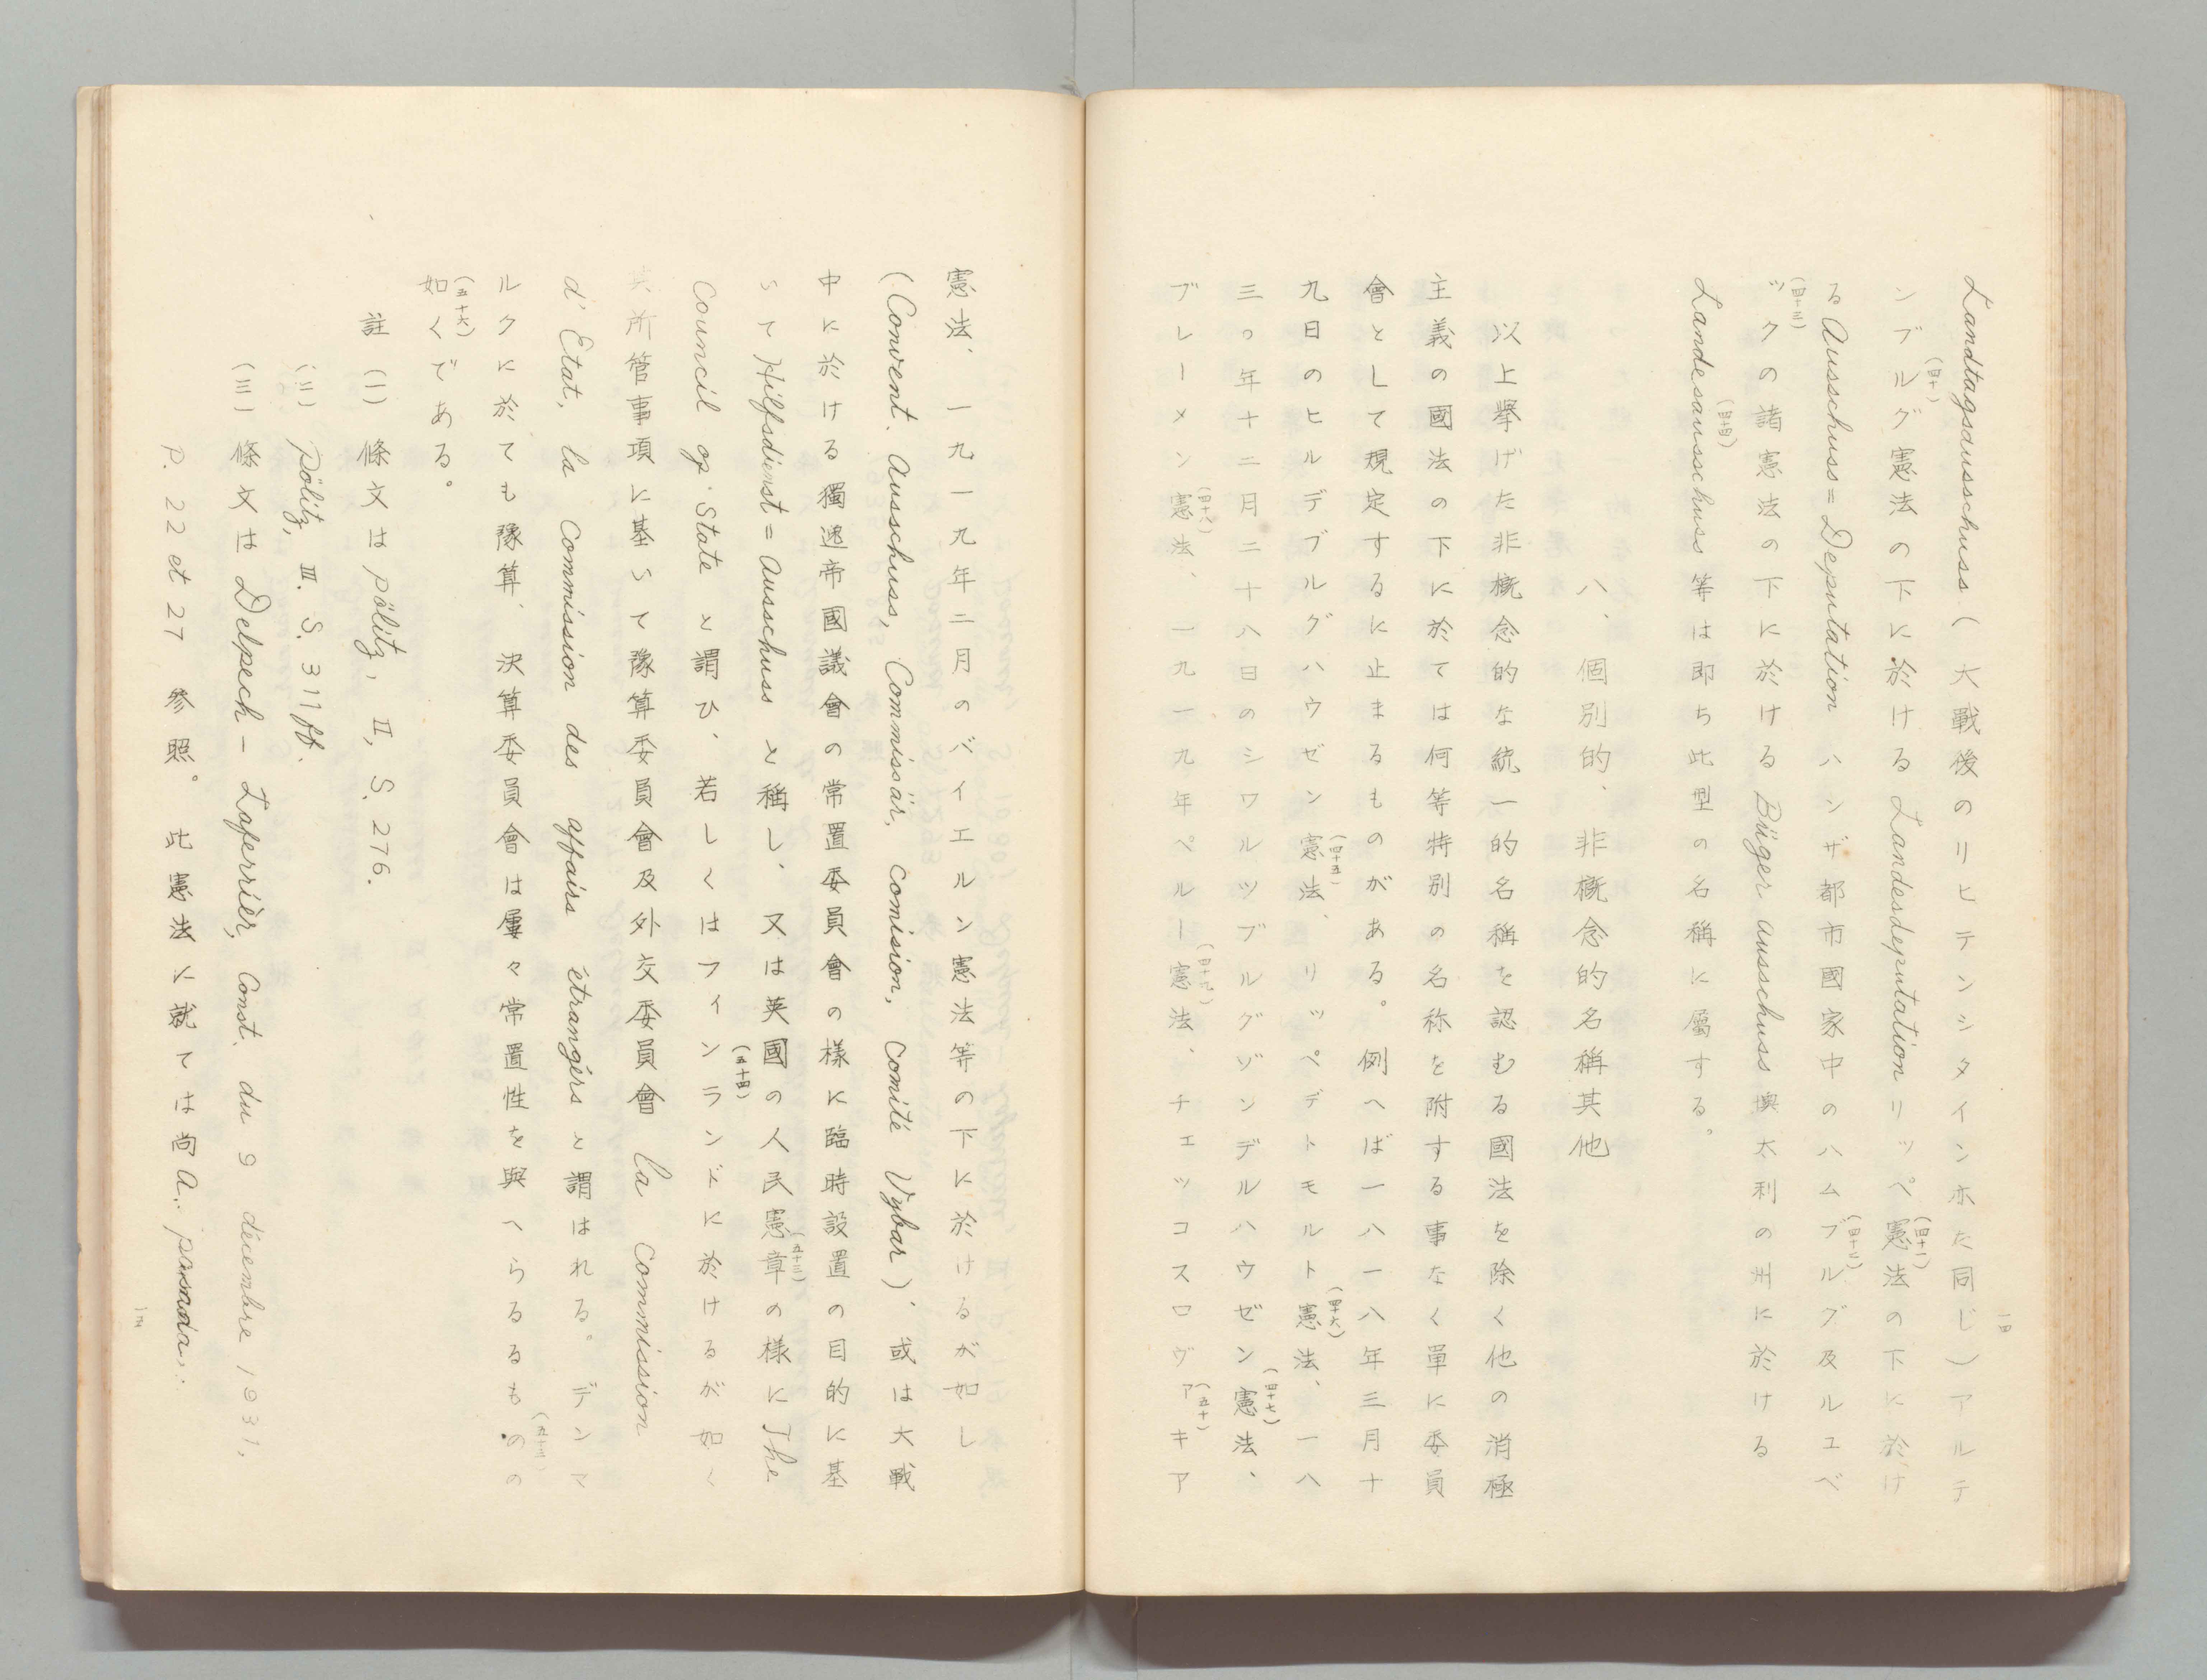 Landtagsausschuss (大戰後のリヒテンシタイン亦た同じ)アルテ
ンブルグ憲法(四十)の下に於ける Landesdeputation リッペ憲法(四十一)の下に於け
る Ausschuss=Deputation ハンザ都市國家中のハムブルグ(四十二)及ルユベ
ック(四十三)の諸憲法の下に於ける Büger ausschuss 墺太利の州に於ける
Landesausschuss(四十四) 等は即ち此型の名稱に屬する。
八、個別的、非概念的名稱其他
以上擧げた非概念的な統一的名稱を認むる國法を除く他の消極
主義の國法の下に於ては何等特別の名称を附する事なく單に委員
會として規定するに止まるものがある。例へば一八一八年三月十
九日のヒルデブルグハウゼン憲法(四十五)、リッペデトモルト憲法(四十六)、一八
三〇年十二月二十八日のシワルツブルグゾンデルハウゼン憲法(四十七)、
ブレーメン憲法(四十八)、一九一九年ペルー憲法(四十九)、チェッコスロヴァキア(五十)
一四
憲法、一九一九年二月のバイエルン憲法等の下に於けるが如し
(Convent. Ausschuss, Commissär, Comision, Comité Vybar)、或は大戰
中に於ける獨逸帝國議會の常置委員會の様に臨時設置の目的に基
いて Hilfsdienst=Ausschuss と稱し、又は英國の人民憲章(五十三)の様に The
Council of State(五十四) と謂ひ、若しくはフィンランドに於けるが如く
其所管事項に基いて豫算委員會及外交委員會 la Commission
d'Etat, la Commission des affairs étrangérs と謂はれる。デンマ
ルクに於ても豫算、決算委員會は屢々常置性を與へらるるものの
如くである(五十六)。
註 (一) 條文は Pölitz, II, S. 276.
(二) Pölitz, III. S. 311 ff.
(三) 條文は Delpech – Laferrièr, Const. du 9 décembre 1931,
P. 22 et 27 參照。此憲法に就ては尚 A. posada,
一五